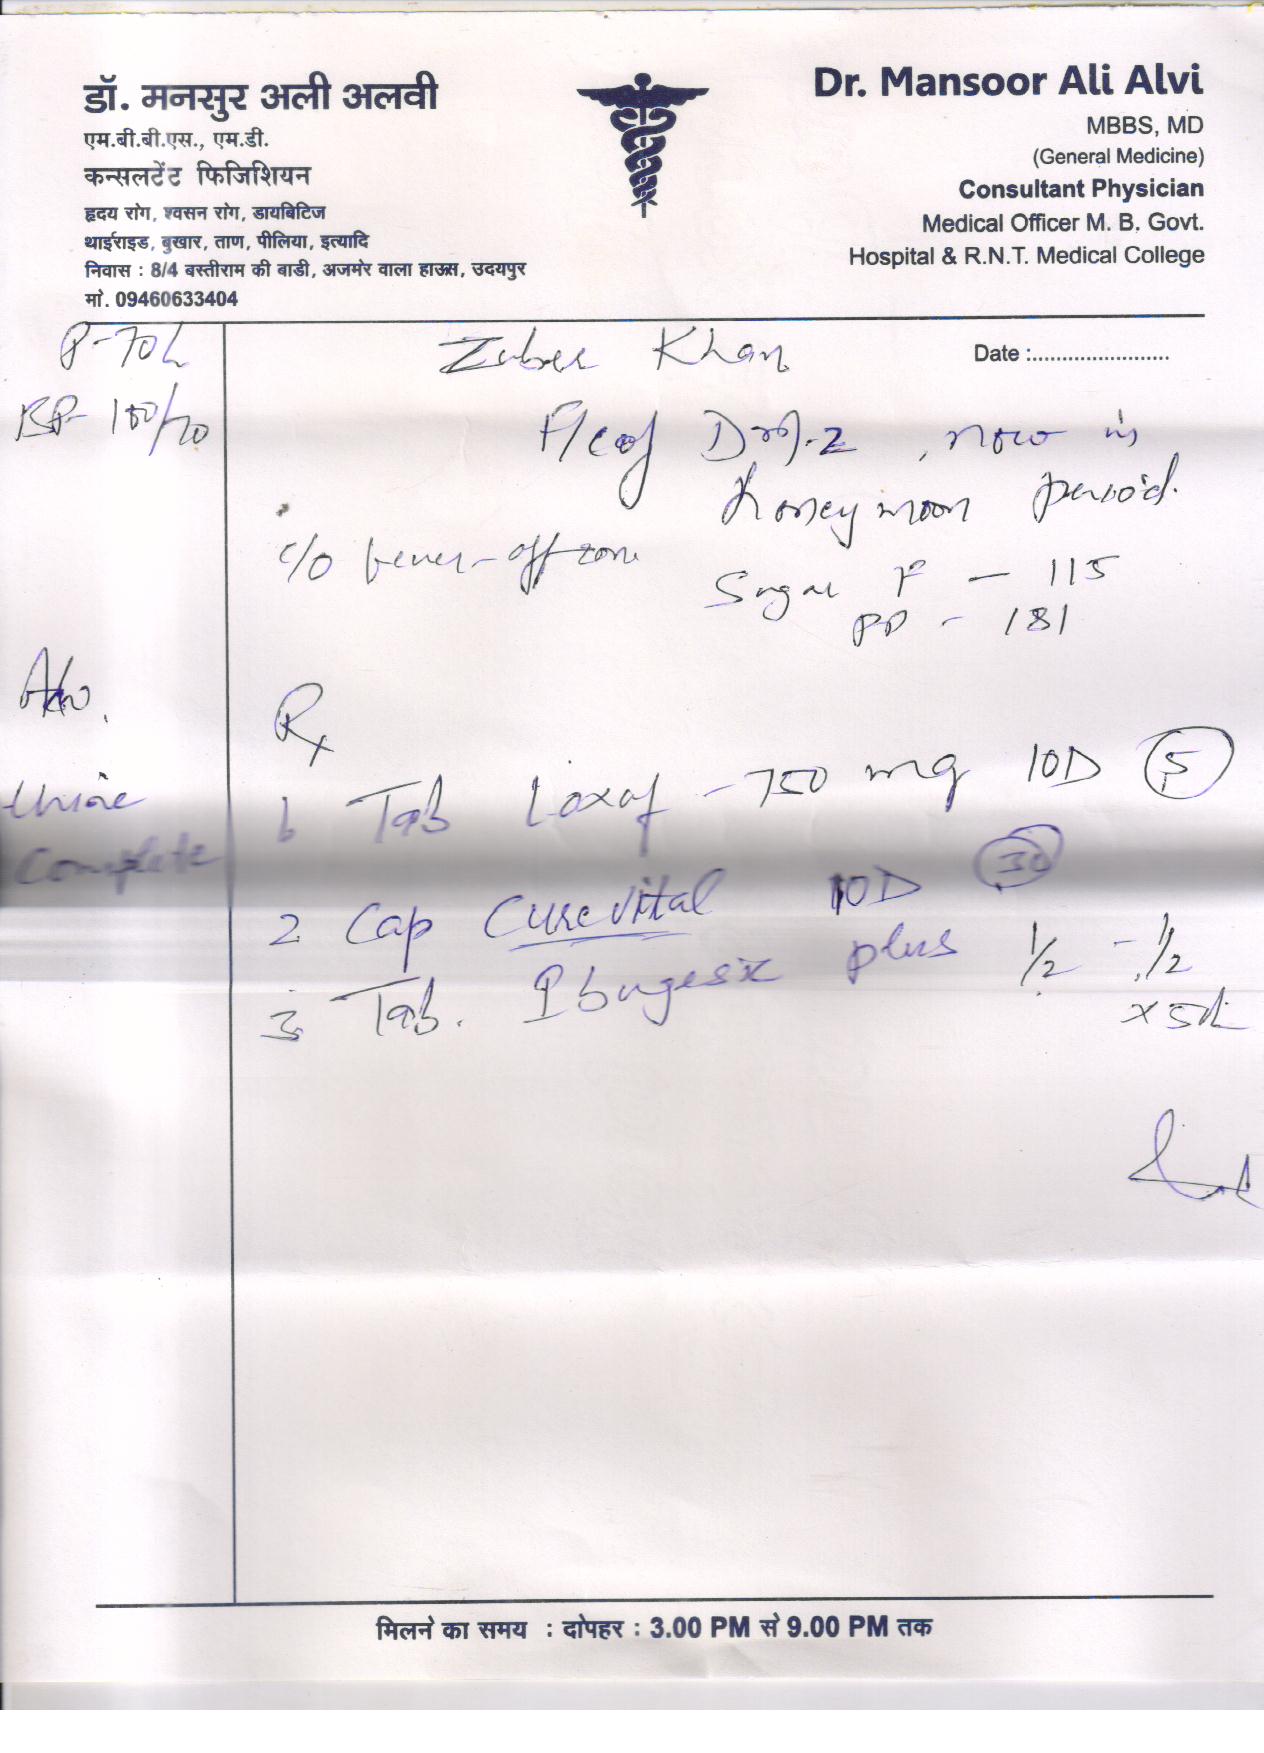 डॉ. मनसुर अली अलवी
एम.बी.बी.एस., एम.डी.
कन्सलटेंट फिजिशियन
हृदय रोग, श्वसन रोग, डायबिटिज
थाईराइड, बुखार, ताण, पीलिया, इत्यादि
निवास : 8/4 बस्तीराम की बाडी, अजमेर वाला हाऊस, उदयपुर
मो. 09460633404
Dr. Mansoor Ali Alvi
MBBS, MD
(General Medicine)
Consultant Physician
Medical Officer M. B. Govt.
Hospital & R.N.T. Medical College
P-70
BP- 100/70
Zuber Khan
Date :.......................
now in
honeymoon period.
c/o fever-off
Sugar F - 115
PP - 181
Adv.
Urine
Complete
Rx
1 Tab Loxof - 750 mg 10D (5)
2 Cap Curevital 10D (30)
3 Tab. Ibugesic plus 1/2 - 1/2
x 5d
मिलने का समय : दोपहर : 3.00 PM से 9.00 PM तक